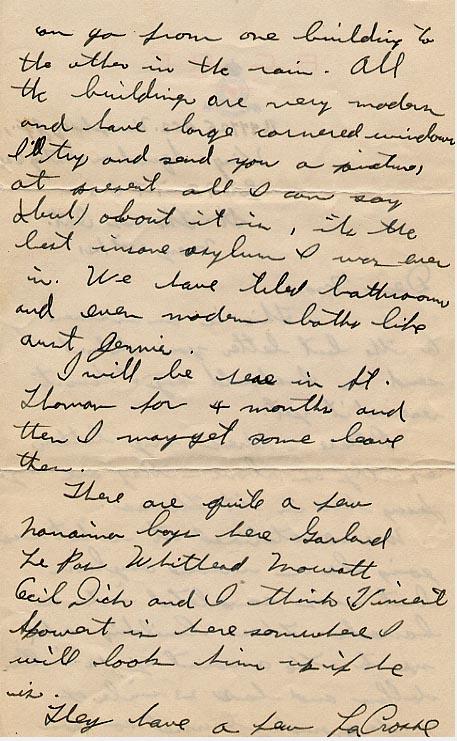 can go from one building to
the other in the rain. All
the buildings are very modern
and have large cornered windows
I'll try and send you a picture,
at present all I can say
(but) about it is, its the
best insane asylum I was ever
in. We have tiled bathrooms
and even modern baths like
aunt Jennie.
I will be here in St.
Thomas for 4 months and
then I may get some leave
then.
There are quite a few
Nanaimo boys here Garland
Le Pas Whitlead Mowatt
Cecil Dick and I think Vincent
is here somewhere I
will look him up if he
is.
They have a few LaCrosse